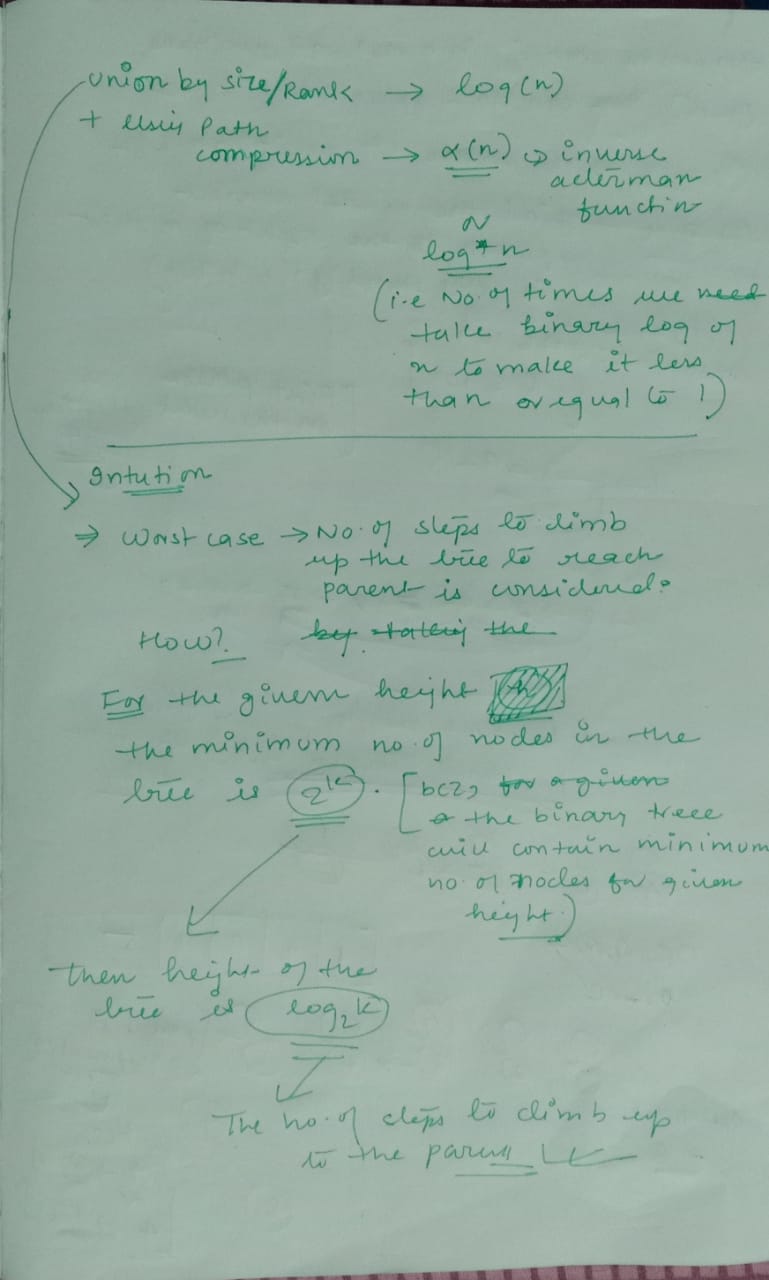 union by size/Rank → log(n)
+ Using Path
compression → α(n) → inverse
ackerman
functin
~
log*n
(i.e No. of times we need
take binary log of
n to make it less
than or equal to 1)
Intution
⇒ Worst case → No. of steps to climb
up the tree to reach
parent is considered.
How? by taking the
For the givem height
the minimum no. of nodes in the
tree is 2^k. [bcz, for a given
the binary treee
will contain minimum
no. of nodes for given
height.)
then height of the
tree is log₂k
The no. of steps to climb up
to the parent